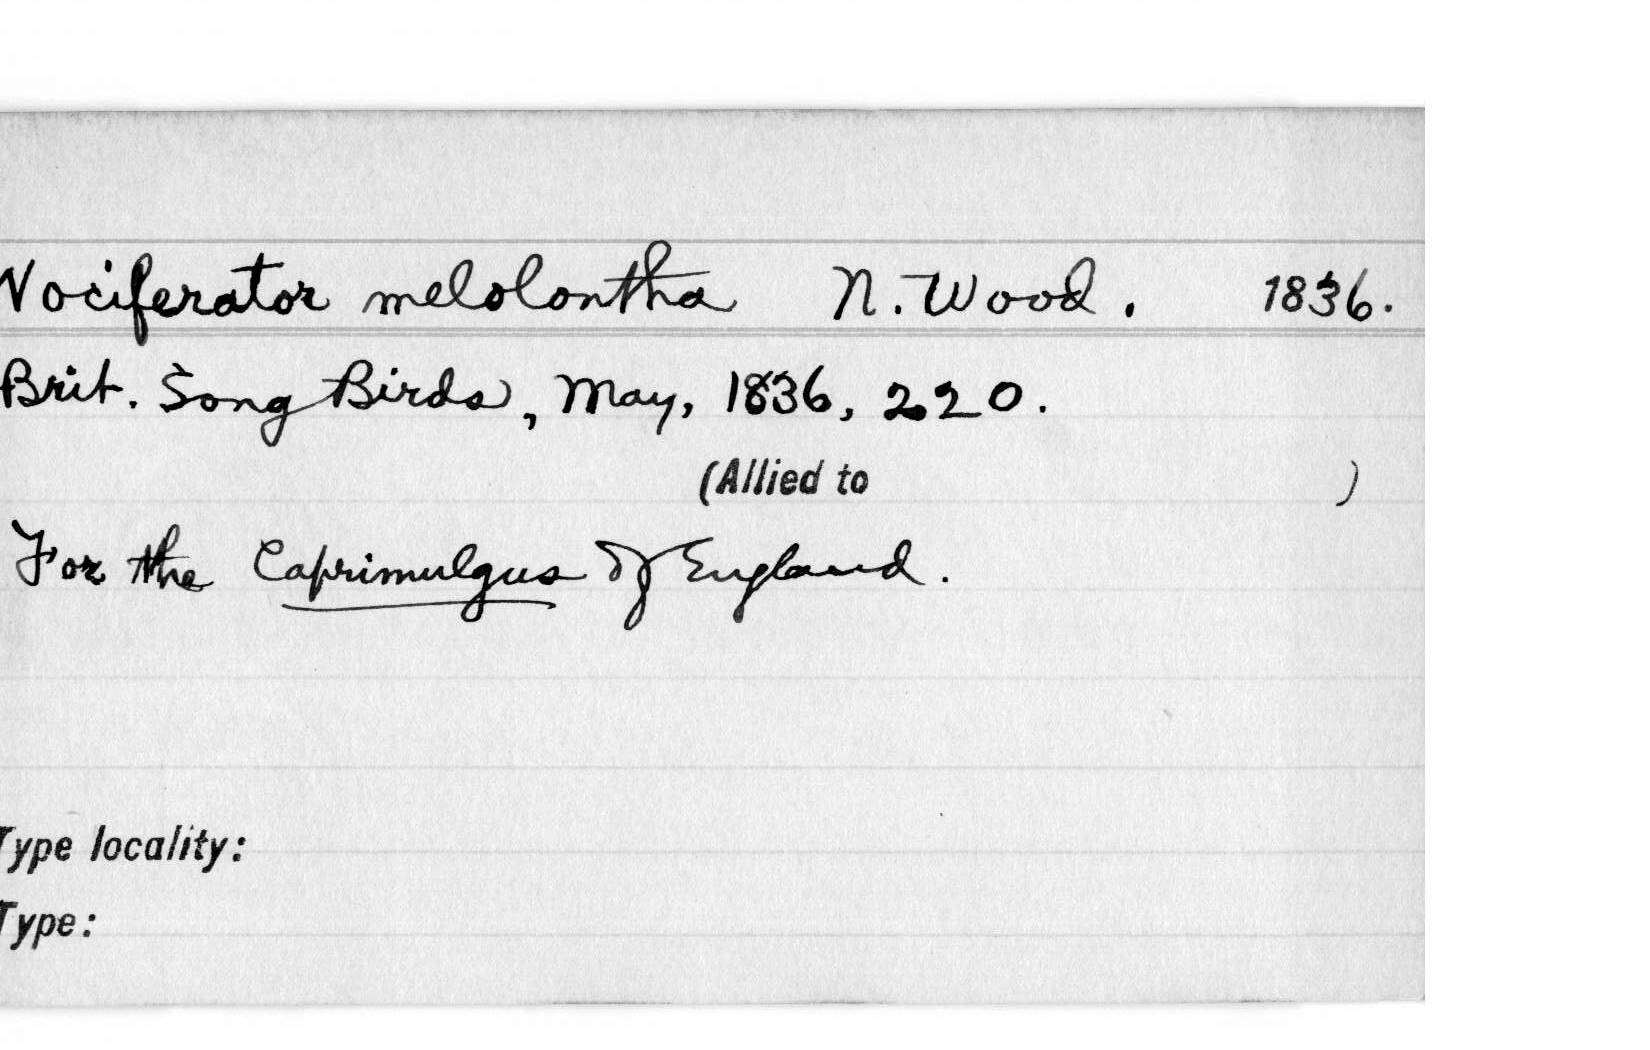 Vociferator melolontha N. Wood. 1836.
Brit. Song Birds, May, 1836, 220.
(Allied to )
For the Caprimulgus of England.
Type locality:
Type: